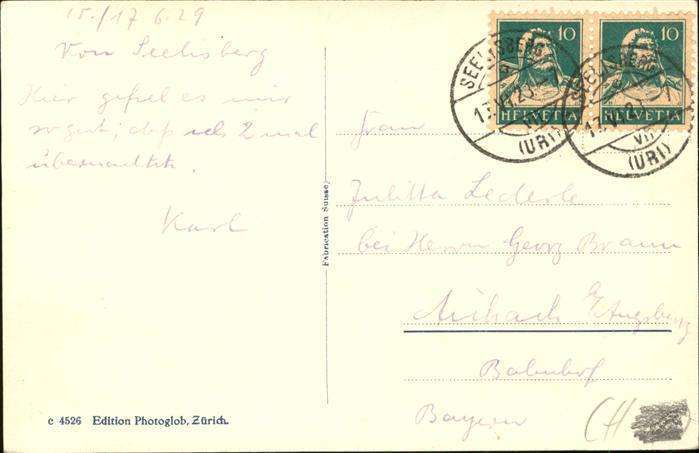 15./17 6.29
Von Seelisberg
Hier gefiel es mir
so gut, daß ich 2 mal
übernachte.
Karl
Fabrication Suisse
c 4526 Edition Photoglob, Zürich.
10 10
HELVETIA HELVETIA
SEELISBERG
(URI)
SEELISBERG
VII
(URI)
Frau
Julitta Lederle
bei Herrn Georg Braun
Aichach b/Augsberg
Bahnhof
Bayern